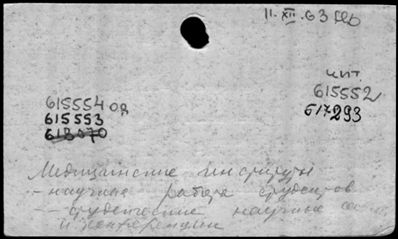 11. XII. 63
чит.
615554 од
615552
615553
617293
613070
Медицинские институты
- научная работа студентов
- - студенческие научные
и конференции